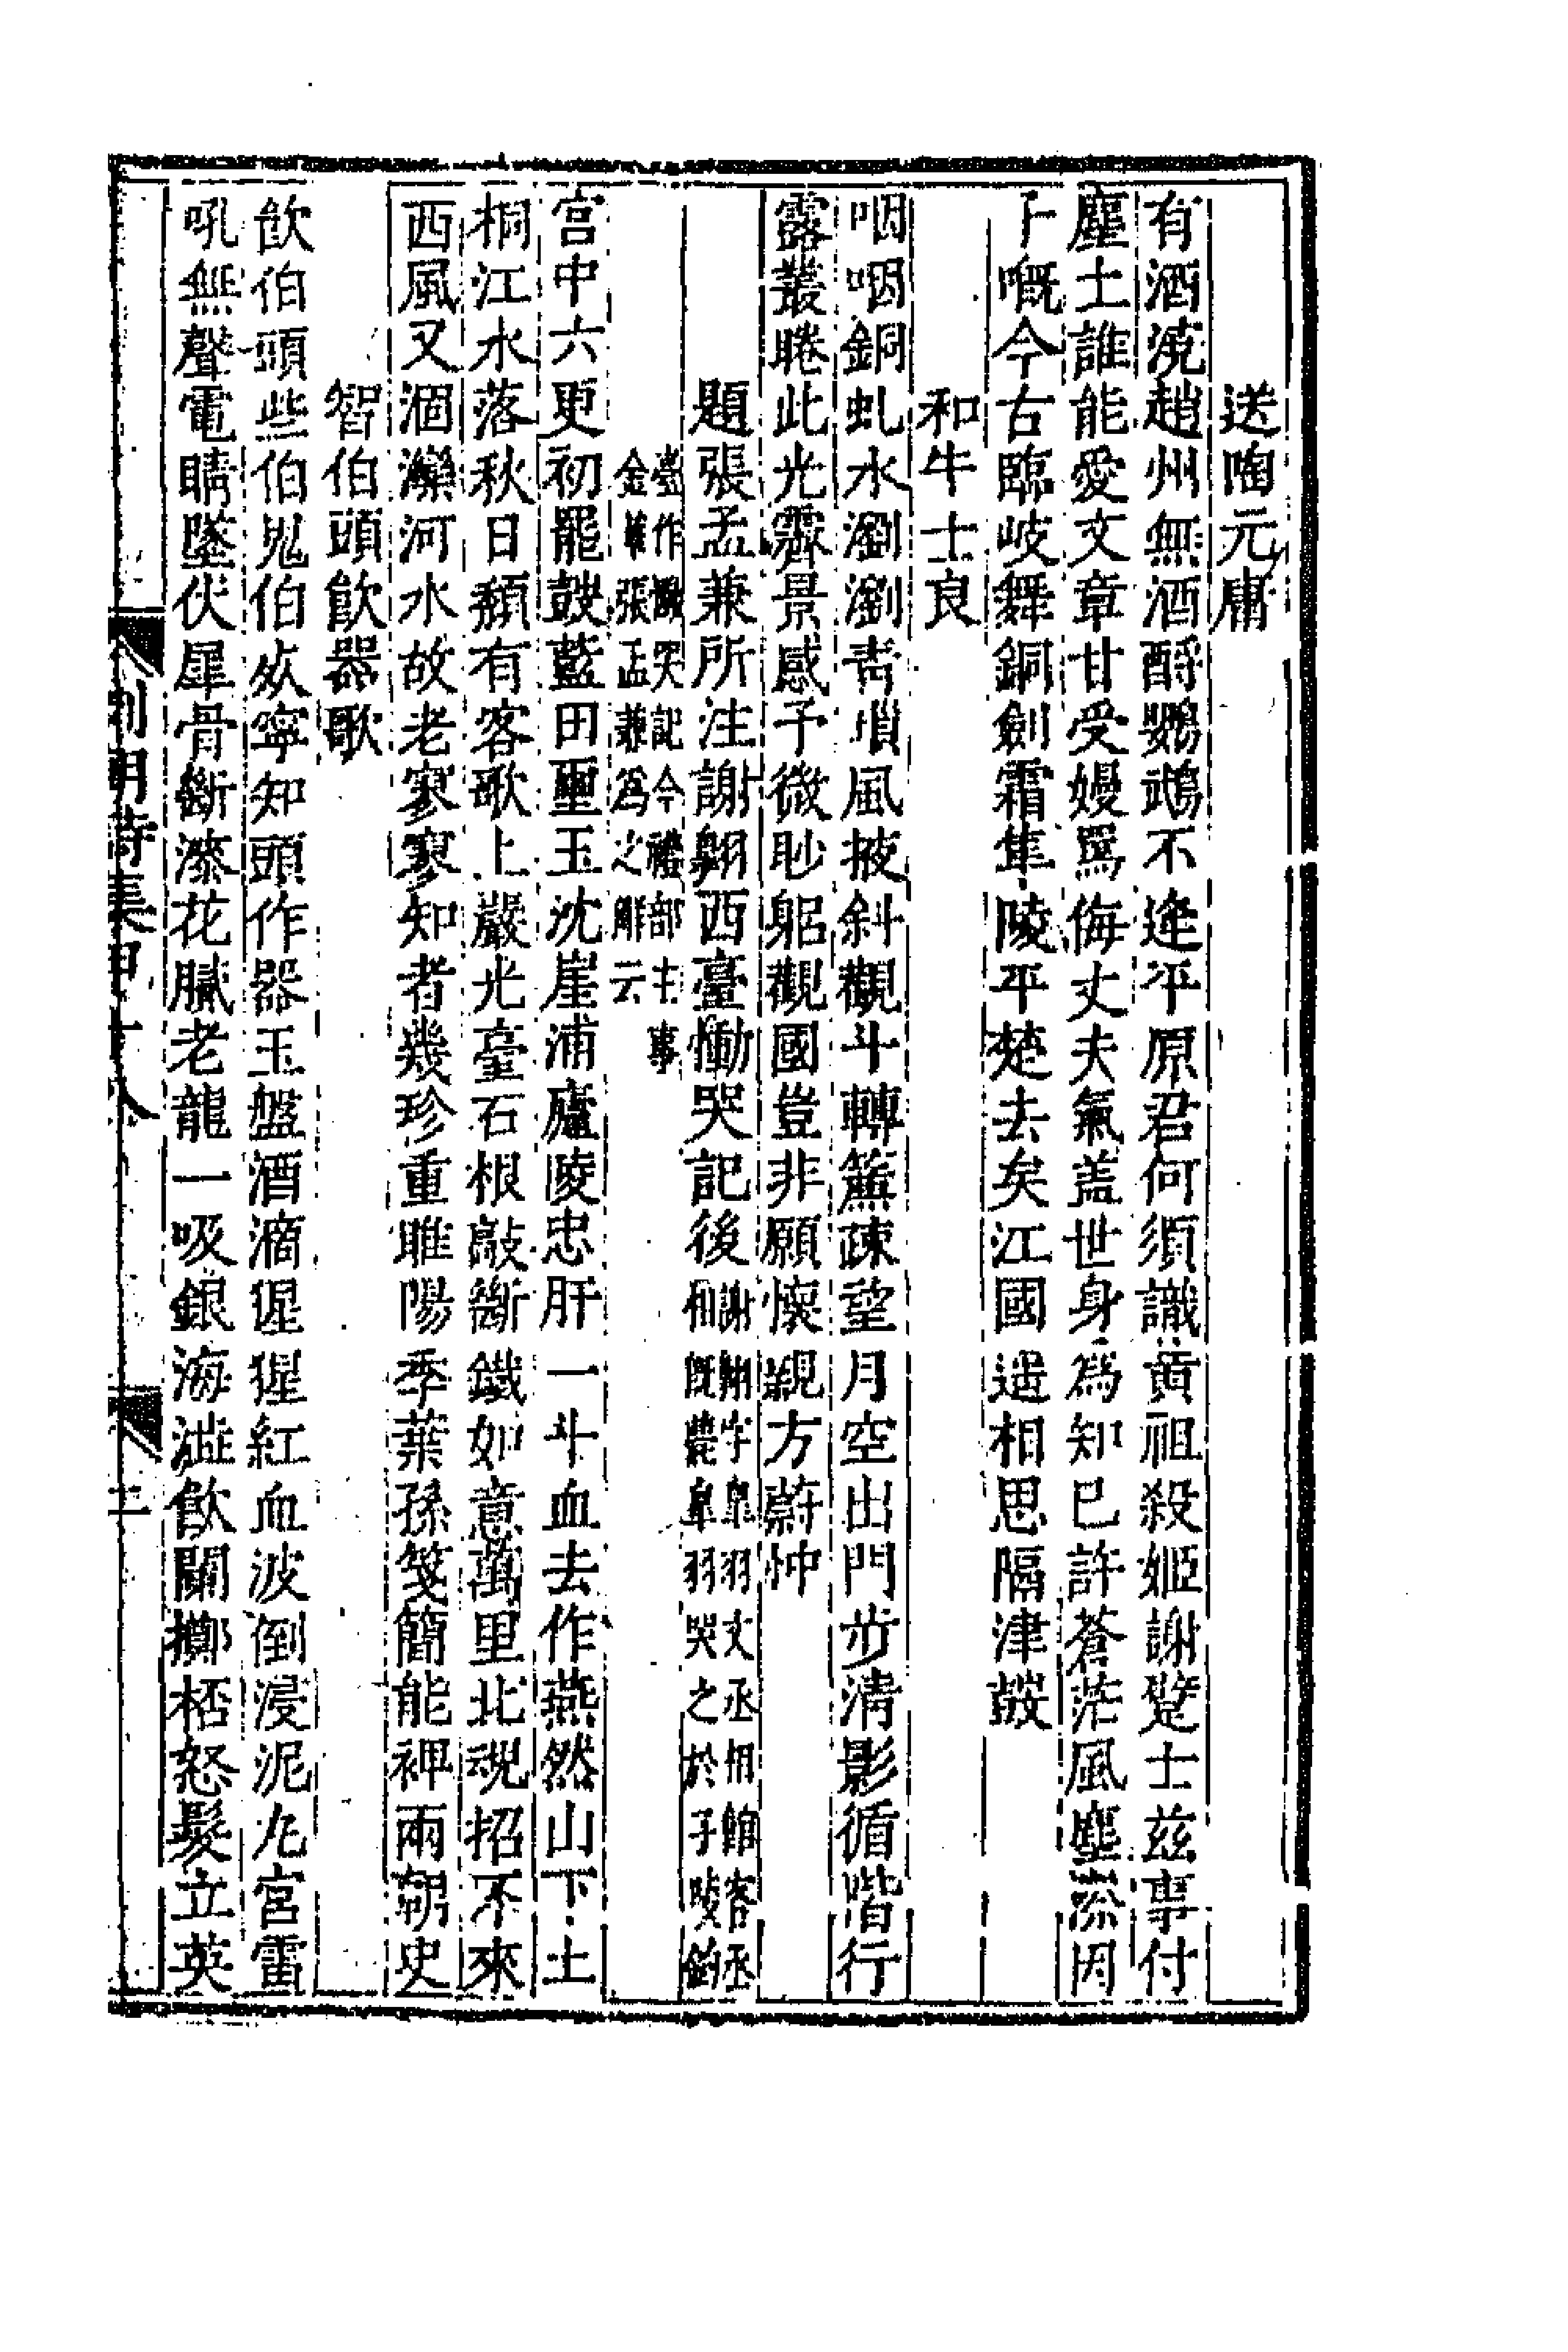 送陶元庸
有酒澆趙州無酒酹鸚鵡不逢平原君何須識黃祖殺姬謝躄士茲事付
塵土誰能愛文章甘受嫚罵侮丈夫氣蓋世身為知己許蒼茫風塵際因
子嘅今古臨岐舞銅劍霜隼陵平楚去矣江國遥相思隔津鼓
和牛士良
咽咽銅虬水瀏瀏青瑣風掖斜觀斗轉簾疎望月空出門步清影循階行
露叢睠此光霽景感予微眇躬觀國豈非願懷親方蔚忡
題張孟兼所注謝翱西臺慟哭記後謝翱字皐羽文丞相館客丞
相既薨皐羽哭之於子陵釣
臺作慟哭記今禮部主事
金華張孟兼爲之觧云
宫中六更初罷鼓藍田璽玉沈崖浦廬陵忠肝一斗血去作燕然山下土
桐江水落秋日頽有客歌上嚴光臺石根敲斷鐵如意萬里北魂招不來
西風又涸灤河水故老寥寥知者幾珍重睢陽季葉孫箋簡能裨兩朝史
智伯頭飲器歌
飲伯頭些伯鬼伯歘寧知頭作器玉盤酒滴猩猩紅血波倒浸泥丸宮雷
吼無聲電睛墜伏犀骨斷漆花膩老龍一吸銀海澁飲闌擲桮怒髮立英
列朝詩集甲十八
十二